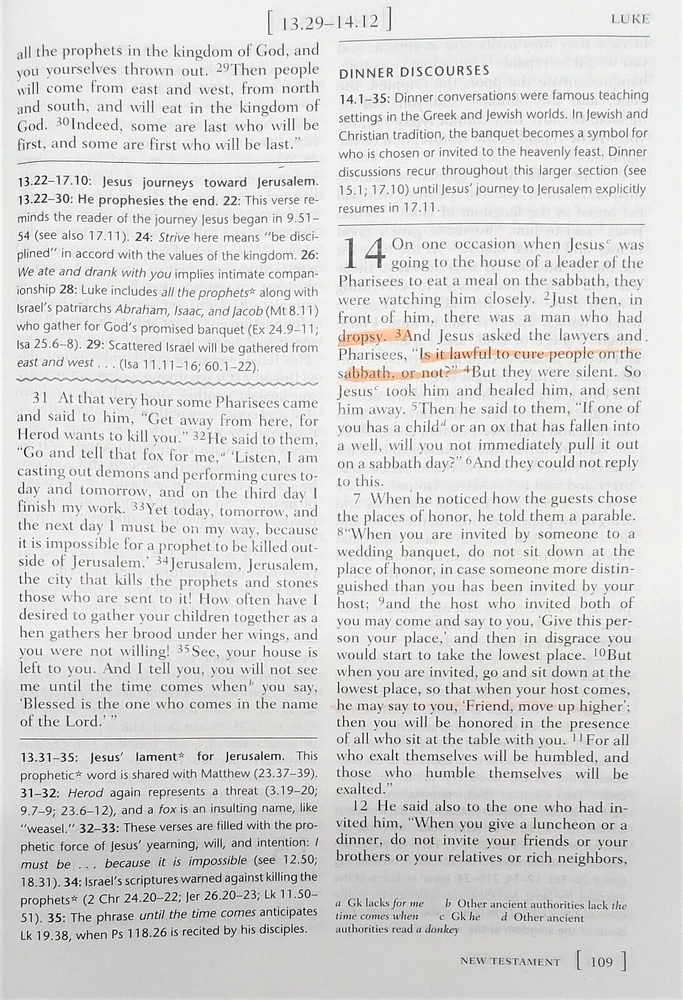 [ 13.29–14.12 ]
LUKE
all the prophets in the kingdom of God, and
you yourselves thrown out. ²⁹Then people
will come from east and west, from north
and south, and will eat in the kingdom of
God. ³⁰Indeed, some are last who will be
first, and some are first who will be last.”
13.22–17.10: Jesus journeys toward Jerusalem.
13.22–30: He prophesies the end. 22: This verse re-
minds the reader of the journey Jesus began in 9.51–
54 (see also 17.11). 24: Strive here means “be disci-
plined” in accord with the values of the kingdom. 26:
We ate and drank with you implies intimate compan-
ionship 28: Luke includes all the prophets* along with
Israel’s patriarchs Abraham, Isaac, and Jacob (Mt 8.11)
who gather for God’s promised banquet (Ex 24.9–11;
Isa 25.6–8). 29: Scattered Israel will be gathered from
east and west . . . (Isa 11.11–16; 60.1–22).
31 At that very hour some Pharisees came
and said to him, “Get away from here, for
Herod wants to kill you.” ³²He said to them,
“Go and tell that fox for me,ᵃ ‘Listen, I am
casting out demons and performing cures to-
day and tomorrow, and on the third day I
finish my work. ³³Yet today, tomorrow, and
the next day I must be on my way, because
it is impossible for a prophet to be killed out-
side of Jerusalem.’ ³⁴Jerusalem, Jerusalem,
the city that kills the prophets and stones
those who are sent to it! How often have I
desired to gather your children together as a
hen gathers her brood under her wings, and
you were not willing! ³⁵See, your house is
left to you. And I tell you, you will not see
me until the time comes whenᵇ you say,
‘Blessed is the one who comes in the name
of the Lord.’ ”
13.31–35: Jesus’ lament* for Jerusalem. This
prophetic* word is shared with Matthew (23.37–39).
31–32: Herod again represents a threat (3.19–20;
9.7–9; 23.6–12), and a fox is an insulting name, like
“weasel.” 32–33: These verses are filled with the pro-
phetic force of Jesus’ yearning, will, and intention: I
must be . . . because it is impossible (see 12.50;
18.31). 34: Israel’s scriptures warned against killing the
prophets* (2 Chr 24.20–22; Jer 26.20–23; Lk 11.50–
51). 35: The phrase until the time comes anticipates
Lk 19.38, when Ps 118.26 is recited by his disciples.
DINNER DISCOURSES
14.1–35: Dinner conversations were famous teaching
settings in the Greek and Jewish worlds. In Jewish and
Christian tradition, the banquet becomes a symbol for
who is chosen or invited to the heavenly feast. Dinner
discussions recur throughout this larger section (see
15.1; 17.10) until Jesus’ journey to Jerusalem explicitly
resumes in 17.11.
14 On one occasion when Jesusᶜ was
going to the house of a leader of the
Pharisees to eat a meal on the sabbath, they
were watching him closely. ²Just then, in
front of him, there was a man who had
dropsy. ³And Jesus asked the lawyers and
Pharisees, “Is it lawful to cure people on the
sabbath, or not?” ⁴But they were silent. So
Jesusᶜ took him and healed him, and sent
him away. ⁵Then he said to them, “If one of
you has a childᵈ or an ox that has fallen into
a well, will you not immediately pull it out
on a sabbath day?” ⁶And they could not reply
to this.
7 When he noticed how the guests chose
the places of honor, he told them a parable.
⁸“When you are invited by someone to a
wedding banquet, do not sit down at the
place of honor, in case someone more distin-
guished than you has been invited by your
host; ⁹and the host who invited both of
you may come and say to you, ‘Give this per-
son your place,’ and then in disgrace you
would start to take the lowest place. ¹⁰But
when you are invited, go and sit down at the
lowest place, so that when your host comes,
he may say to you, ‘Friend, move up higher’;
then you will be honored in the presence
of all who sit at the table with you. ¹¹For all
who exalt themselves will be humbled, and
those who humble themselves will be
exalted.”
12 He said also to the one who had in-
vited him, “When you give a luncheon or a
dinner, do not invite your friends or your
brothers or your relatives or rich neighbors,
a Gk lacks for me b Other ancient authorities lack the
time comes when c Gk he d Other ancient
authorities read a donkey
NEW TESTAMENT [ 109 ]